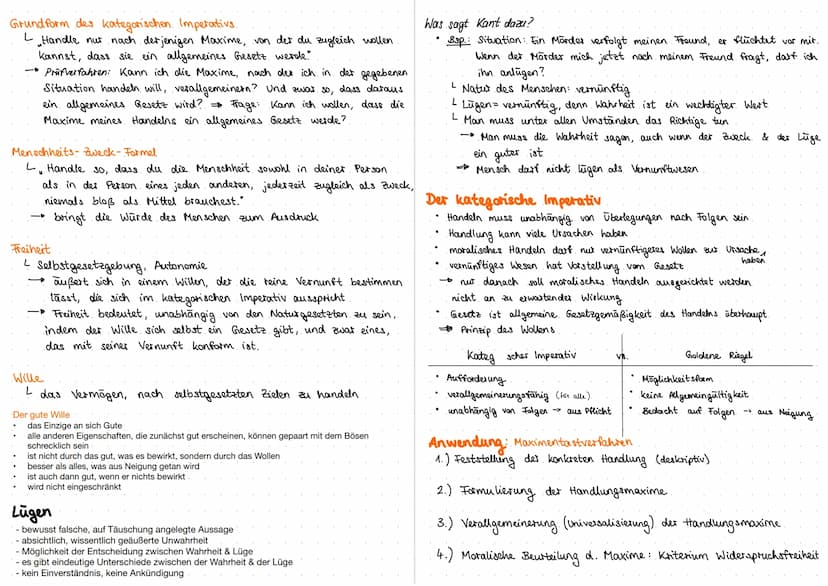 Grundform des kategorischen Imperativs
"Handle nur nach derjenigen Maxime, von der du zugleich wollen
kannst, dass sie ein allgemeines Gesetz werde."
→ Prüfverfahren: Kann ich die Maxime, nach der ich in der gegebenen
Situation handeln will, verallgemeinern? Und zwar so, dass daraus
ein allgemeines Gesetz wird? ⇒ Frage: Kann ich wollen, dass die
Maxime meines Handelns ein allgemeines Gesetz werde?
Menschheits-Zweck-Formel
"Handle so, dass du die Menschheit sowohl in deiner Person
als in der Person eines jeden anderen, jederzeit zugleich als Zweck,
niemals bloß als Mittel brauchest."
→ bringt die Würde des Menschen zum Ausdruck
Freiheit
Selbstgesetzgebung, Autonomie
→ äußert sich in einem Willen, der die reine Vernunft bestimmen
lässt, die sich im kategorischen Imperativ ausspricht
→ Freiheit bedeutet, unabhängig von den Naturgesetzten zu sein,
indem der Wille sich selbst ein Gesetz gibt, und zwar eines,
das mit seines Vernunft konform ist.
Wille
das Vermögen, nach selbstgesetzten Zielen zu handeln
Der gute Wille
• das Einzige an sich Gute
• alle anderen Eigenschaften, die zunächst gut erscheinen, können gepaart mit dem Bösen
schrecklich sein
• ist nicht durch das gut, was es bewirkt, sondern durch das Wollen
• besser als alles, was aus Neigung getan wird
• ist auch dann gut, wenn er nichts bewirkt
• wird nicht eingeschränkt
Lügen
- bewusst falsche, auf Täuschung angelegte Aussage
- absichtlich, wissentlich geäußerte Unwahrheit
- Möglichkeit der Entscheidung zwischen Wahrheit & Lüge
- es gibt eindeutige Unterschiede zwischen der Wahrheit & der Lüge
- kein Einverständnis, keine Ankündigung
Was sagt Kant dazu?
• Bsp.: Situation: Ein Mörder verfolgt meinen Freund, er flüchtet vor mir.
Wenn der Mörder mich jetzt nach meinem Freund fragt, darf ich
ihn anlügen?
Natur des Menschen: vernünftig
Lügen = vernünftig, denn Wahrheit ist ein wechtigter Wert
Man muss unter allen Umständen das Richtige tun
→ Man muss die Wahrheit sagen, auch wenn der Zweck & der Lüge
ein guter ist
⇒ Mensch darf nicht lügen als Vernunftwesen
Der kategorische Imperativ
• Handeln muss unabhängig von Überlegungen nach Folgen sein
• Handlung kann viele Ursachen haben
• moralisches Handeln darf nur vernünftigeres Wollen zur Ursache haben
• vernünftiges Wesen hat Vorstellung vom Gesetz
→ nur danach soll moralisches Handeln ausgerichtet werden
nicht an zu erwartender Wirkung
• Gesetz ist allgemeine Gesetzgemäßigkeit des Handelns überhaupt
⇒ Prinzip des Wollens
Kateg scher Imperativ vs. Goldene Regel
• Aufforderung • Möglichkeitsform
• verallgemeinerungsfähig (für alle) • keine Allgemeingültigkeit
• unabhängig von Folgen → aus Pflicht • Bedacht auf Folgen → aus Neigung
Anwendung: Maximentestverfahren
1.) Feststellung der konkreten Handlung (deskriptiv)
2.) Formulierung der Handlungsmaxime
3.) Verallgemeinerung (Universalisierung) der Handlungsmaxime
4.) Moralische Beurteilung d. Maxime: Kriterium Widerspruchsfreiheit